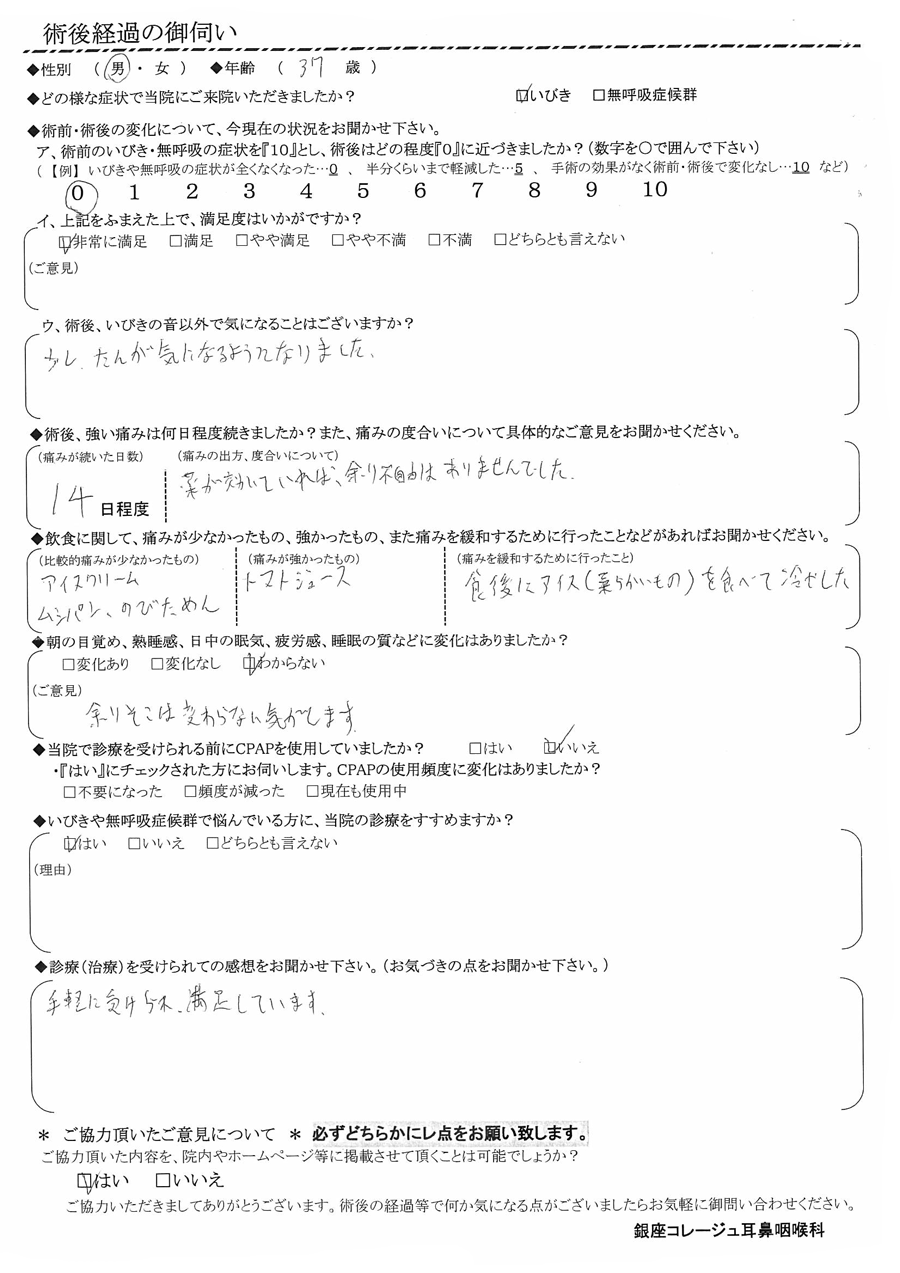 術後経過の御伺い
◆性別 ( 男 ・ 女 ) ◆年齢 ( 37 歳 )
◆どの様な症状で当院にご来院いただきましたか? ☑いびき □無呼吸症候群
◆術前・術後の変化について、今現在の状況をお聞かせ下さい。
ア、術前のいびき・無呼吸の症状を『10』とし、術後はどの程度『0』に近づきましたか?(数字を○で囲んで下さい)
(【例】 いびきや無呼吸の症状が全くなくなった…0 、 半分くらいまで軽減した…5 、 手術の効果がなく術前・術後で変化なし…10 など)
0 1 2 3 4 5 6 7 8 9 10
イ、上記をふまえた上で、満足度はいかがですか?
☑非常に満足 □満足 □やや満足 □やや不満 □不満 □どちらとも言えない
(ご意見)
ウ、術後、いびきの音以外で気になることはございますか?
少し、たんが気になるようになりました、
◆術後、強い痛みは何日程度続きましたか?また、痛みの度合いについて具体的なご意見をお聞かせください。
(痛みが続いた日数) (痛みの出方、度合いについて)
14 日程度 薬が効いていれば、余り不自由はありませんでした.
◆飲食に関して、痛みが少なかったもの、強かったもの、また痛みを緩和するために行ったことなどがあればお聞かせください。
(比較的痛みが少なかったもの) (痛みが強かったもの) (痛みを緩和するために行ったこと)
アイスクリーム トマトジュース 食後にアイス(柔らかいもの)を食べて冷やした
ムシパン、のびためん
◆朝の目覚め、熟睡感、日中の眠気、疲労感、睡眠の質などに変化はありましたか?
□変化あり □変化なし ☑わからない
(ご意見)
余りそこは変わらない気がします.
◆当院で診療を受けられる前にCPAPを使用していましたか? □はい ☑いいえ
・『はい』にチェックされた方にお伺いします。CPAPの使用頻度に変化はありましたか?
□不要になった □頻度が減った □現在も使用中
◆いびきや無呼吸症候群で悩んでいる方に、当院の診療をすすめますか?
☑はい □いいえ □どちらとも言えない
(理由)
◆診療(治療)を受けられての感想をお聞かせ下さい。(お気づきの点をお聞かせ下さい。)
手軽に受けられ、満足しています.
＊ ご協力頂いたご意見について ＊ 必ずどちらかにレ点をお願い致します。
ご協力頂いた内容を、院内やホームページ等に掲載させて頂くことは可能でしょうか?
☑はい □いいえ
ご協力いただきましてありがとうございます。術後の経過等で何か気になる点がございましたらお気軽に御問い合わせください。
銀座コレージュ耳鼻咽喉科